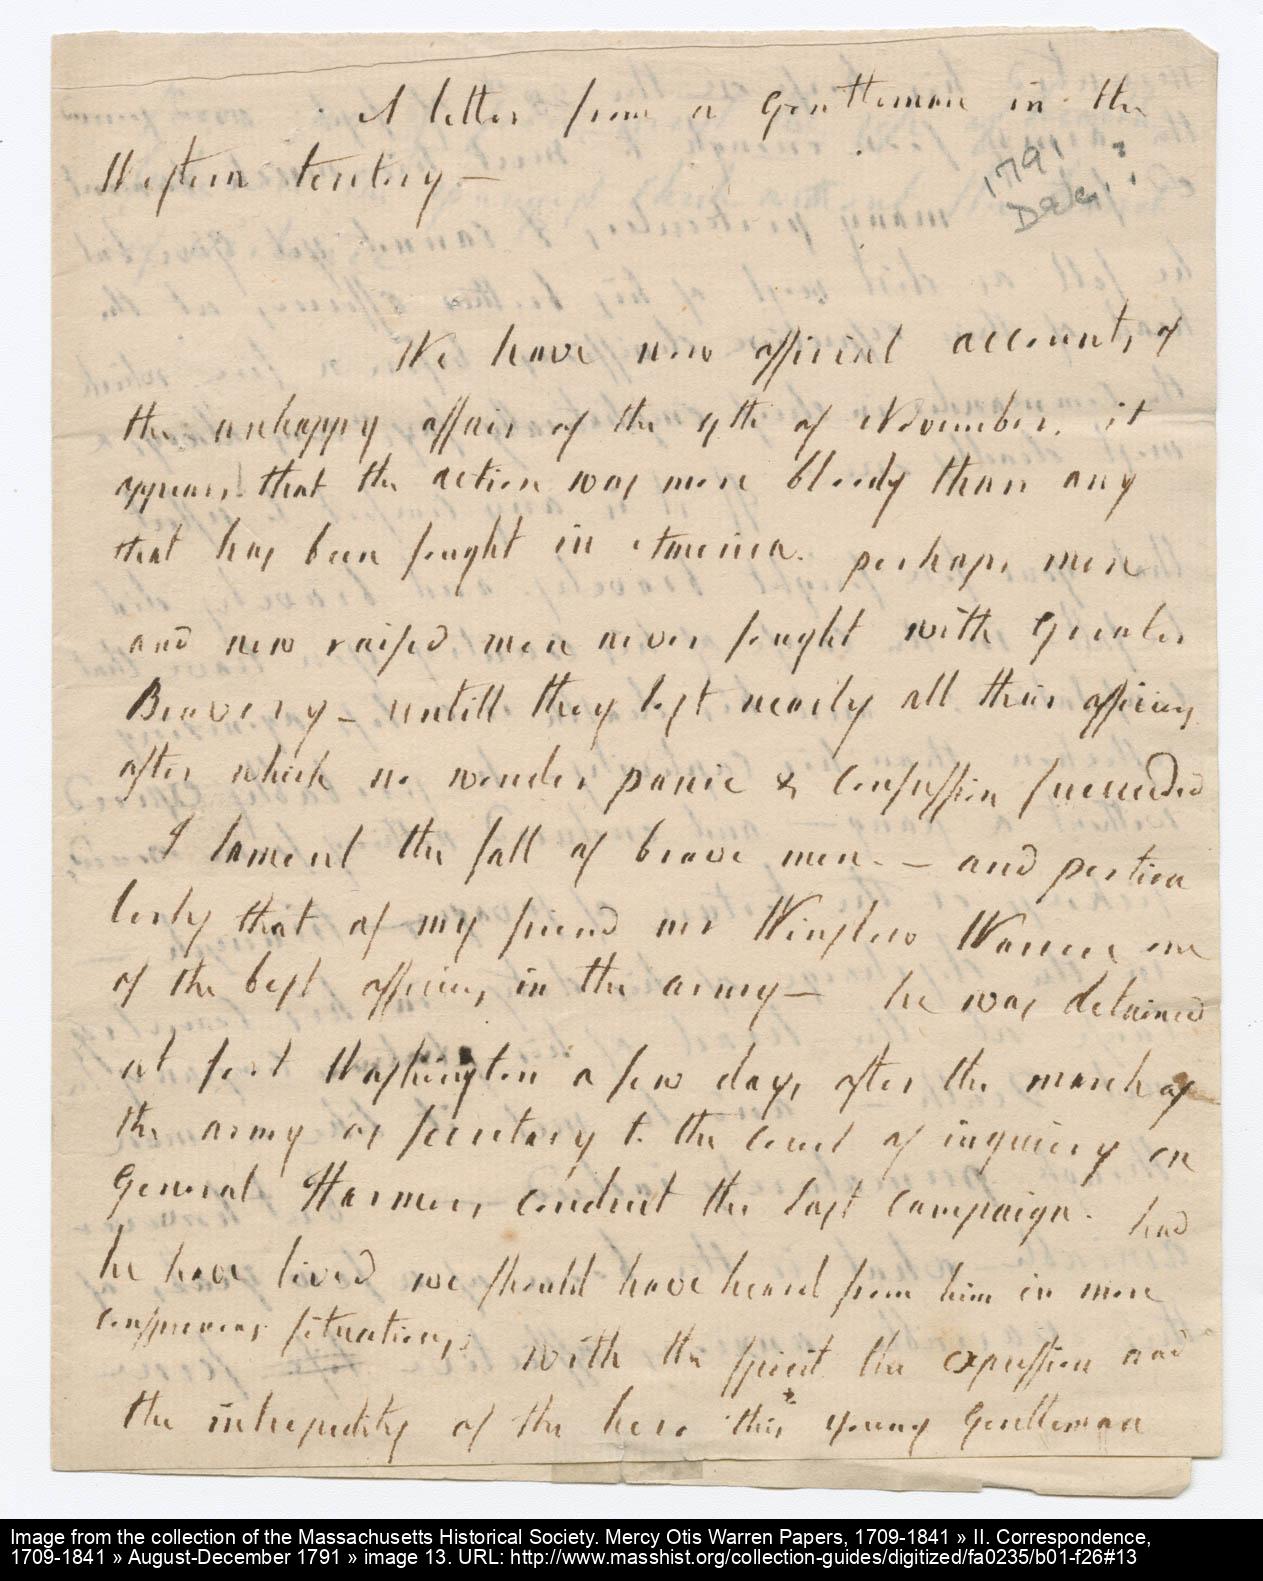 A letter from a Gentleman in the
Western teritory —
1791
Dec. ?
We have now official accounts of
the unhappy affair of the 4th of November. it
appears that the action was more bloody than any
that has been fought in America. perhaps men
and new raised men never fought with Greater
Bravery — untill they lost nearly all their officers
after which no wonder panic & confussion succeeded
I lament the fall of brave men — and perticu
lerly that of my friend mr Winslow Warren one
of the best officers in the army — he was detained
at fort Washington a few days after the march of
the army as secretary to the court of inquiery on
General Harmers conduct the last campaign. had
he have lived we should have heard from him in more
conspicuous situations; with the spirit the expression and
the intrepidity of the hero this young Gentleman
Image from the collection of the Massachusetts Historical Society. Mercy Otis Warren Papers, 1709-1841 » II. Correspondence,
1709-1841 » August-December 1791 » image 13. URL: http://www.masshist.org/collection-guides/digitized/fa0235/b01-f26#13